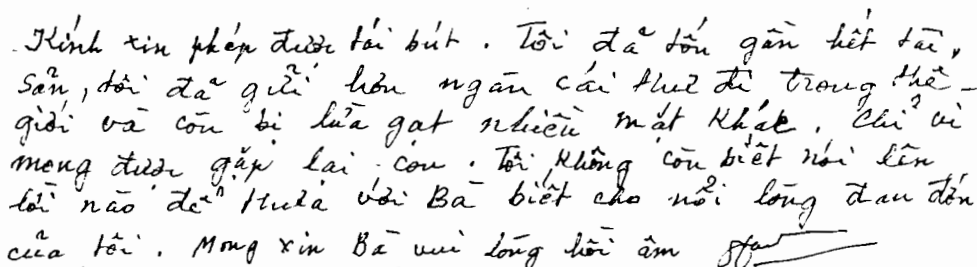 Kính xin phép được tái bút. Tôi đã tốn gần hết tài
sản, tôi đã gửi hơn ngàn cái thư đi trong thế-
giới và còn bị lừa gạt nhiều mặt khác. Chỉ vì
mong được gặp lại con. Tôi không còn biết nói lên
lời nào để thưa với Bà biết cho nỗi lòng đau đớn
của tôi. Mong xin Bà vui lòng hồi âm